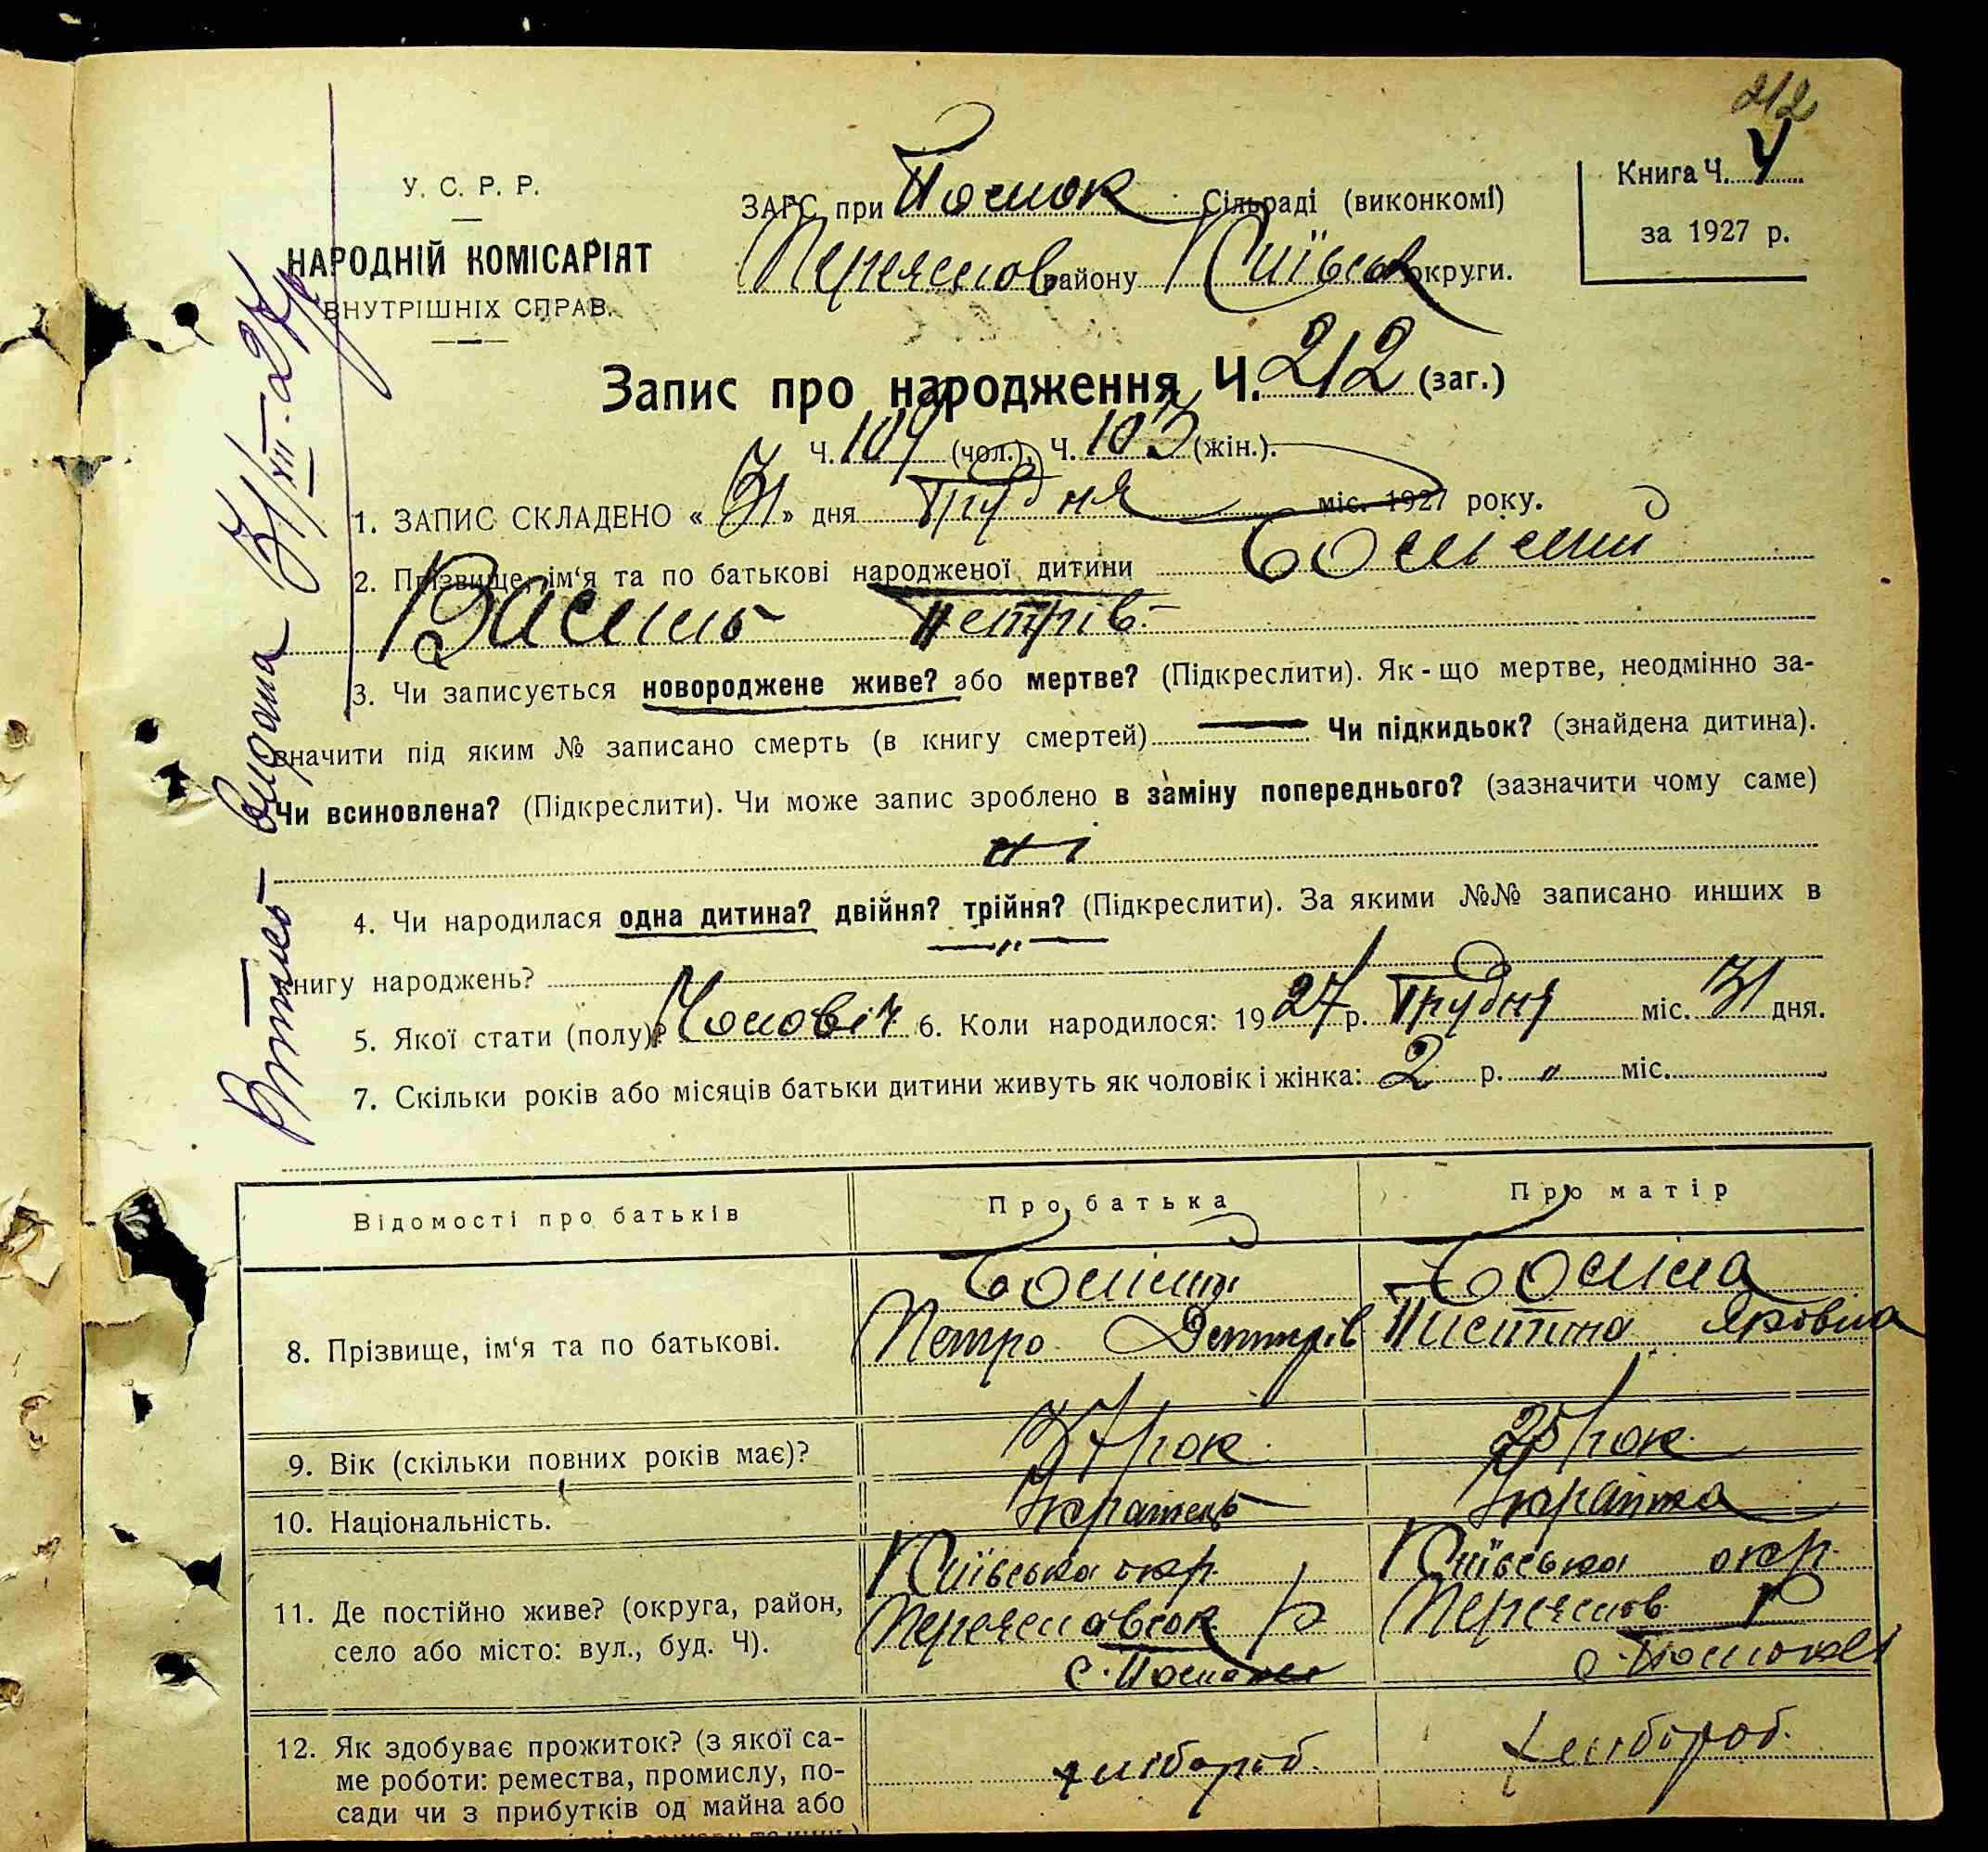 212
У. С. Р. Р.
НАРОДНІЙ КОМІСАРІЯТ
ВНУТРІШНІХ СПРАВ.
ЗАГС при Помок Сільраді (виконкомі)
Переяслов району Київськ округи.
Книга Ч. 4
за 1927 р.
Запис про народження Ч. 212 (заг.)
Ч. 109 (чол.), Ч. 103 (жін.).
1. ЗАПИС СКЛАДЕНО « 31 » дня Грудня міс. 1927 року.
2. Прізвище, ім‘я та по батькові народженої дитини
Василь Петрів
3. Чи записується новороджене живе? або мертве? (Підкреслити). Як - що мертве, неодмінно за-
значити під яким № записано смерть (в книгу смертей) Чи підкидьок? (знайдена дитина).
Чи всиновлена? (Підкреслити). Чи може запис зроблено в заміну попереднього? (зазначити чому саме)
ні
4. Чи народилася одна дитина? двійня? трійня? (Підкреслити). За якими №№ записано инших в
книгу народжень?
5. Якої стати (полу)? Чоловіч 6. Коли народилося: 1927 р. Грудня міс. 31 дня.
7. Скільки років або місяців батьки дитини живуть як чоловік і жінка: 2 р. „ міс.
Витяг видана 31/XII-27р
Відомості про батьків
Про батька
Про матір
8. Прізвище, ім‘я та по батькові.
Петро Дмитрів
Яковна
9. Вік (скільки повних років має)?
37 рок
25 рок
10. Національність.
Українець
Українка
11. Де постійно живе? (округа, район,
село або місто: вул., буд. Ч).
Київська окр.
Переяславськ р
Київська окр.
Переяслов р
12. Як здобуває прожиток? (з якої са-
ме роботи: ремества, промислу, по-
сади чи з прибутків од майна або
хлібороб.
хлібороб.